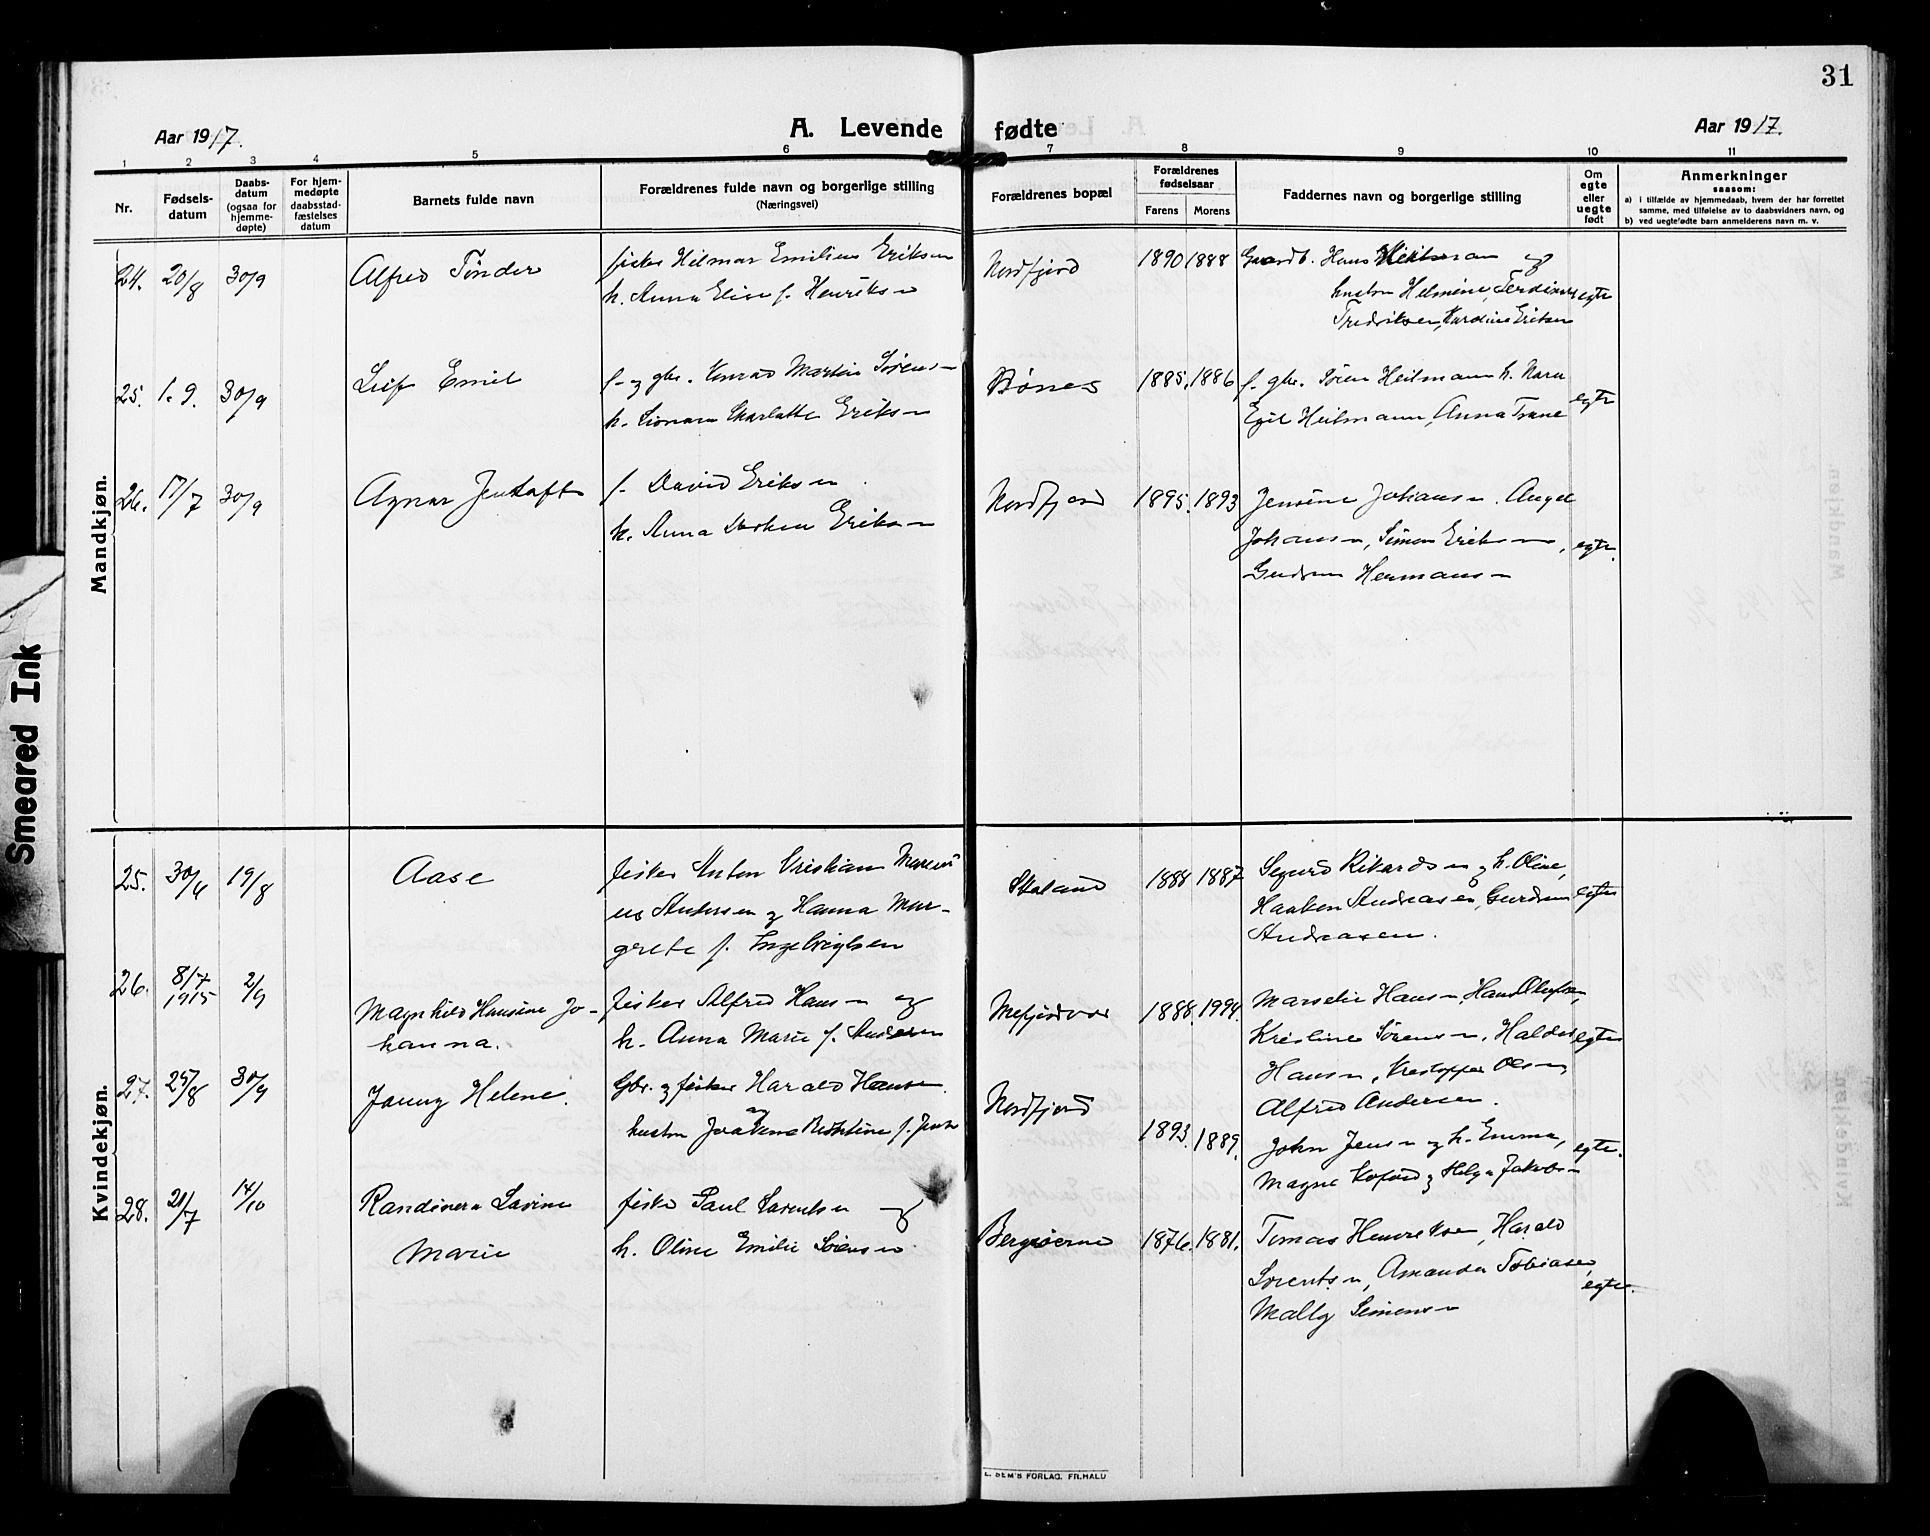 31
Aar 1917.
A. Levende fødte
Aar 1917.
1 2 3 4 5 6 7 8 9 10 11
Nr.
Fødselsdatum
Daabsdatum (ogsaa for hjemmedøpte)
For hjemmedøpte daabsstadfæstelses datum
Barnets fulde navn
Forældrenes fulde navn og borgerlige stilling
(Næringsvei)
Forældrenes bopæl
Forældrenes fødselsaar
Farens Morens
Faddernes navn og borgerlige stilling
Om egte eller uegte født
Anmerkninger
saasom:
a) i tilfælde av hjemmedaab, hvem der har forrettet
samme, med tilføielse av to daabsvidners navn, og
b) ved uegtefødte barn anmelderens navn m. v.
Mandkjøn.
24. 20/8 30/9 Alfred Tønder
fisker Hilmar Emilius Eriksen
h. Anna Elise f. Henriksen
Nordfjord 1890 1888
Gaardb. Hans Heitmann og
hustru Helmine, Ferdinand
Fredriksen, Kardine Eriksen
egte
25. 1.9. 30/9 Leif Emil
f. og gbr. Konrad Martin Sørensen
h. Leonara Charlotte Eriksen
Bønes 1885. 1886
f. gbr. Søren Heitmann h. Nara
Egil Heitmann, Anna Trane
egte
26. 17/7 30/9 Agnar Jentoft
f. David Eriksen
h. Anna Dorthea Eriksen
Nordfjord 1895. 1893
Jensine Johansen. Angel
Johansen, Simon Eriksen,
Gudrun Hermansen
egte.
Kvindekjøn.
25. 30/4 19/8 Aase
fisker Anton Kristian Mareni
us Andersen og Hanna Mar-
grete f. Ingebrigtsen
Skaland 1888 1887
Sigurd Rikardsen og h. Oline,
Haakon Andreasen, Gurdrun
Andreasen.
egte
26. 8/7 1915 2/9
Magnhild Hansine Jo-
hanna.
fisker Alfred Hansen og
h. Anna Marie f. Andersen
Mefjordvær 1888. 1994.
Marselie Hansen, Hans Olufsen,
Kristine Sørensen, Haldor
Hansen, Kristoffer Olsen,
Alfred Andersen.
egte
27. 25/8 30/9 Janny Helene.
Gbr. og fisker Harald Hansen
hustru Joakime Kristine f. Jens
Nordfjord 1893. 1889.
John Jensen og h. Emma,
Magne Kofoed og Helga Jakobsen
egte.
28. 21/7 14/10 Randinera Lavine
Marie
fisker Paul Larentsen og
h. Oline Emilie Sørensen.
Bergsøerne 1876. 1881.
Tomas Henriksen, Harald
Lorentsen, Amanda Tobiasen,
Mally Simensen
egte.
Smeared Ink
E. SEM'S FORLAG, FR.HALD